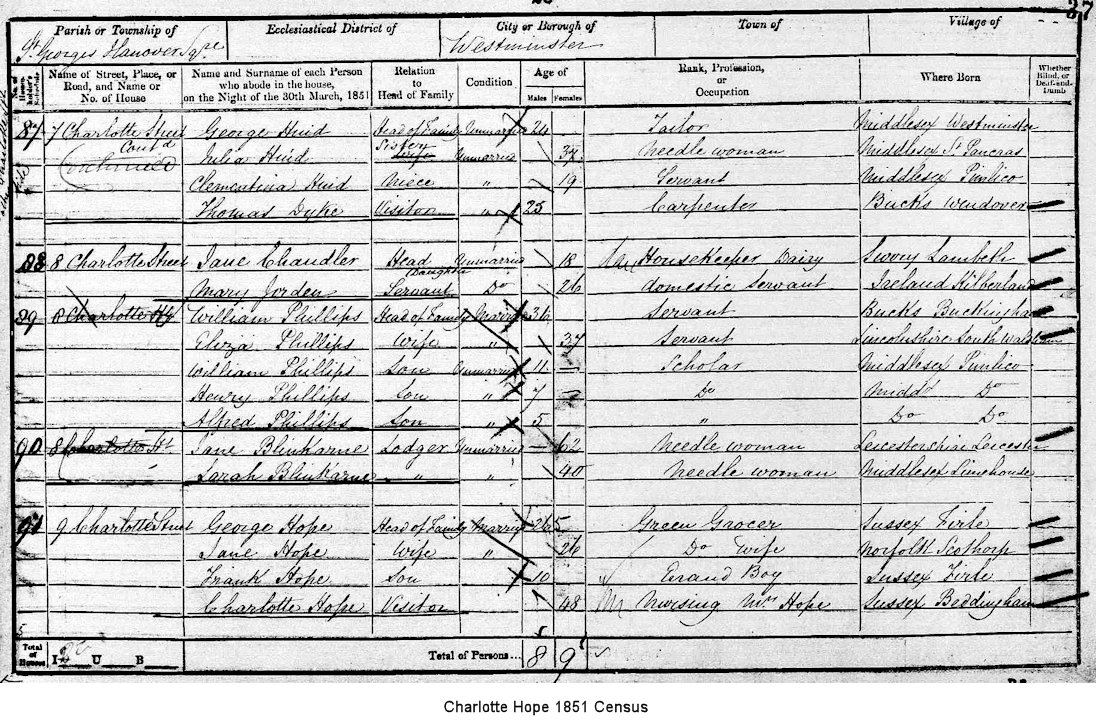 37
Parish or Township of Ecclesiastical District of City or Borough of Town of Village of
St. Georges Hanover Sqre Westminster
No. of House-holder's Schedule Name of Street, Place, or Road, and Name or No. of House Name and Surname of each Person who abode in the house, on the Night of the 30th March, 1851 Relation to Head of Family Condition Age of Males Females Rank, Profession, or Occupation Where Born Whether Blind, or Deaf-and-Dumb
87 7 Charlotte Street George Huid Head of Family Unmarried 24 Tailor Middlesex Westminster
Cont'd Julia Huid Sister Wife Unmarried Needle woman Middlesex St Pancras
Clementina Huid Niece " 19 Servant Middlesex Pimlico
Thomas Dyke Visitor " 25 Carpenter Bucks Wendover
88 8 Charlotte Street Jane Chandler Head Daughter Unmarried 18 Housekeeper Dairy Lambeth
Mary Jorden Servant Do 26 domestic Servant Ireland
89 8 Charlotte William Phillips Head of Family Married 36 Servant Bucks Buckingham
Eliza Phillips Wife " 37 Servant Lincolnshire South
William Phillips Son Unmarried 11 Scholar Middlesex Pimlico
Henry Phillips Son " 7 Do Midd Do
Alfred Phillips Son " 5 " Do Do
90 8 Charlotte St Jane Blinkarne Lodger Unmarried 62 Needle woman Leicestershire Leicester
Sarah Blinkarne " " 40 Needle woman Middlesex Limehouse
91 9 Charlotte Street George Hope Head of Family Married Green Grocer Sussex Firle
Jane Hope Wife " 26 Do Wife Norfolk
Frank Hope Son 10 " Errand Boy Sussex Firle
Charlotte Hope Visitor 48 Nursing Mrs Hope Sussex Beddingham
Total of Houses I U B Total of Persons... 8 9
Charlotte Hope 1851 Census